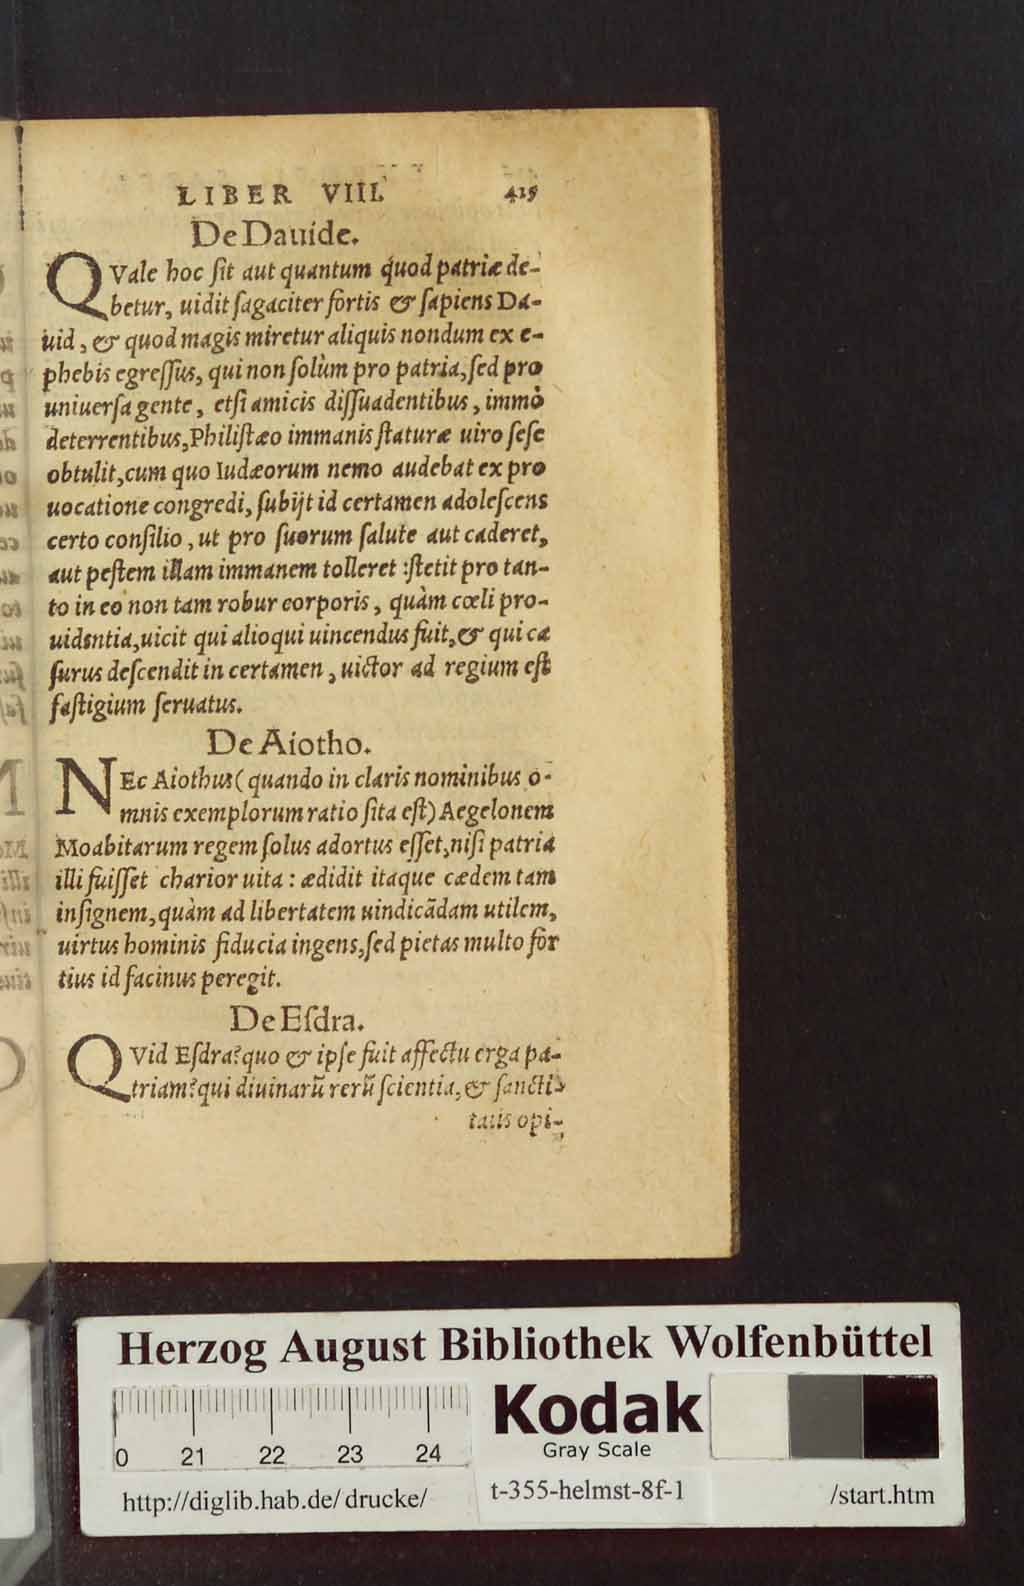 LIBER VIII. 419
De Dauide.
QVale hoc ſit aut quantum quod patriæ de-
betur, uidit ſagaciter fortis & ſapiens Da-
uid, & quod magis miretur aliquis nondum ex e-
phebis egreſſus, qui non ſolùm pro patria, ſed pro
uniuerſa gente, etſi amicis diſſuadentibus, immò
deterrentibus, Philiſtæo immanis ſtaturæ uiro ſeſe
obtulit, cum quo Iudæorum nemo audebat ex pro
uocatione congredi, ſubijt id certamen adoleſcens
certo conſilio, ut pro ſuorum ſalute aut caderet,
aut peſtem illam immanem tolleret: ſtetit pro tan-
to in eo non tam robur corporis, quàm cœli pro-
uidentia, uicit qui alioqui uincendus fuit, & qui ca
ſurus deſcendit in certamen, uictor ad regium eſt
faſtigium ſeruatus.
De Aiotho.
NEc Aiothus (quando in claris nominibus o-
mnis exemplorum ratio ſita eſt) Aegelonem
Moabitarum regem ſolus adortus eſſet, niſi patria
illi fuiſſet charior uita: ædidit itaque cædem tam
inſignem, quàm ad libertatem uindicādam utilem,
uirtus hominis fiducia ingens, ſed pietas multo for
tius id facinus peregit.
De Eſdra.
QVid Eſdra? quo & ipſe fuit affectu erga pa-
triam? qui diuinarū rerū ſcientia, & ſancti-
tatis opi-
Herzog August Bibliothek Wolfenbüttel
0 21 22 23 24
Kodak
Gray Scale
http://diglib.hab.de/drucke/ t-355-helmst-8f-1 /start.htm